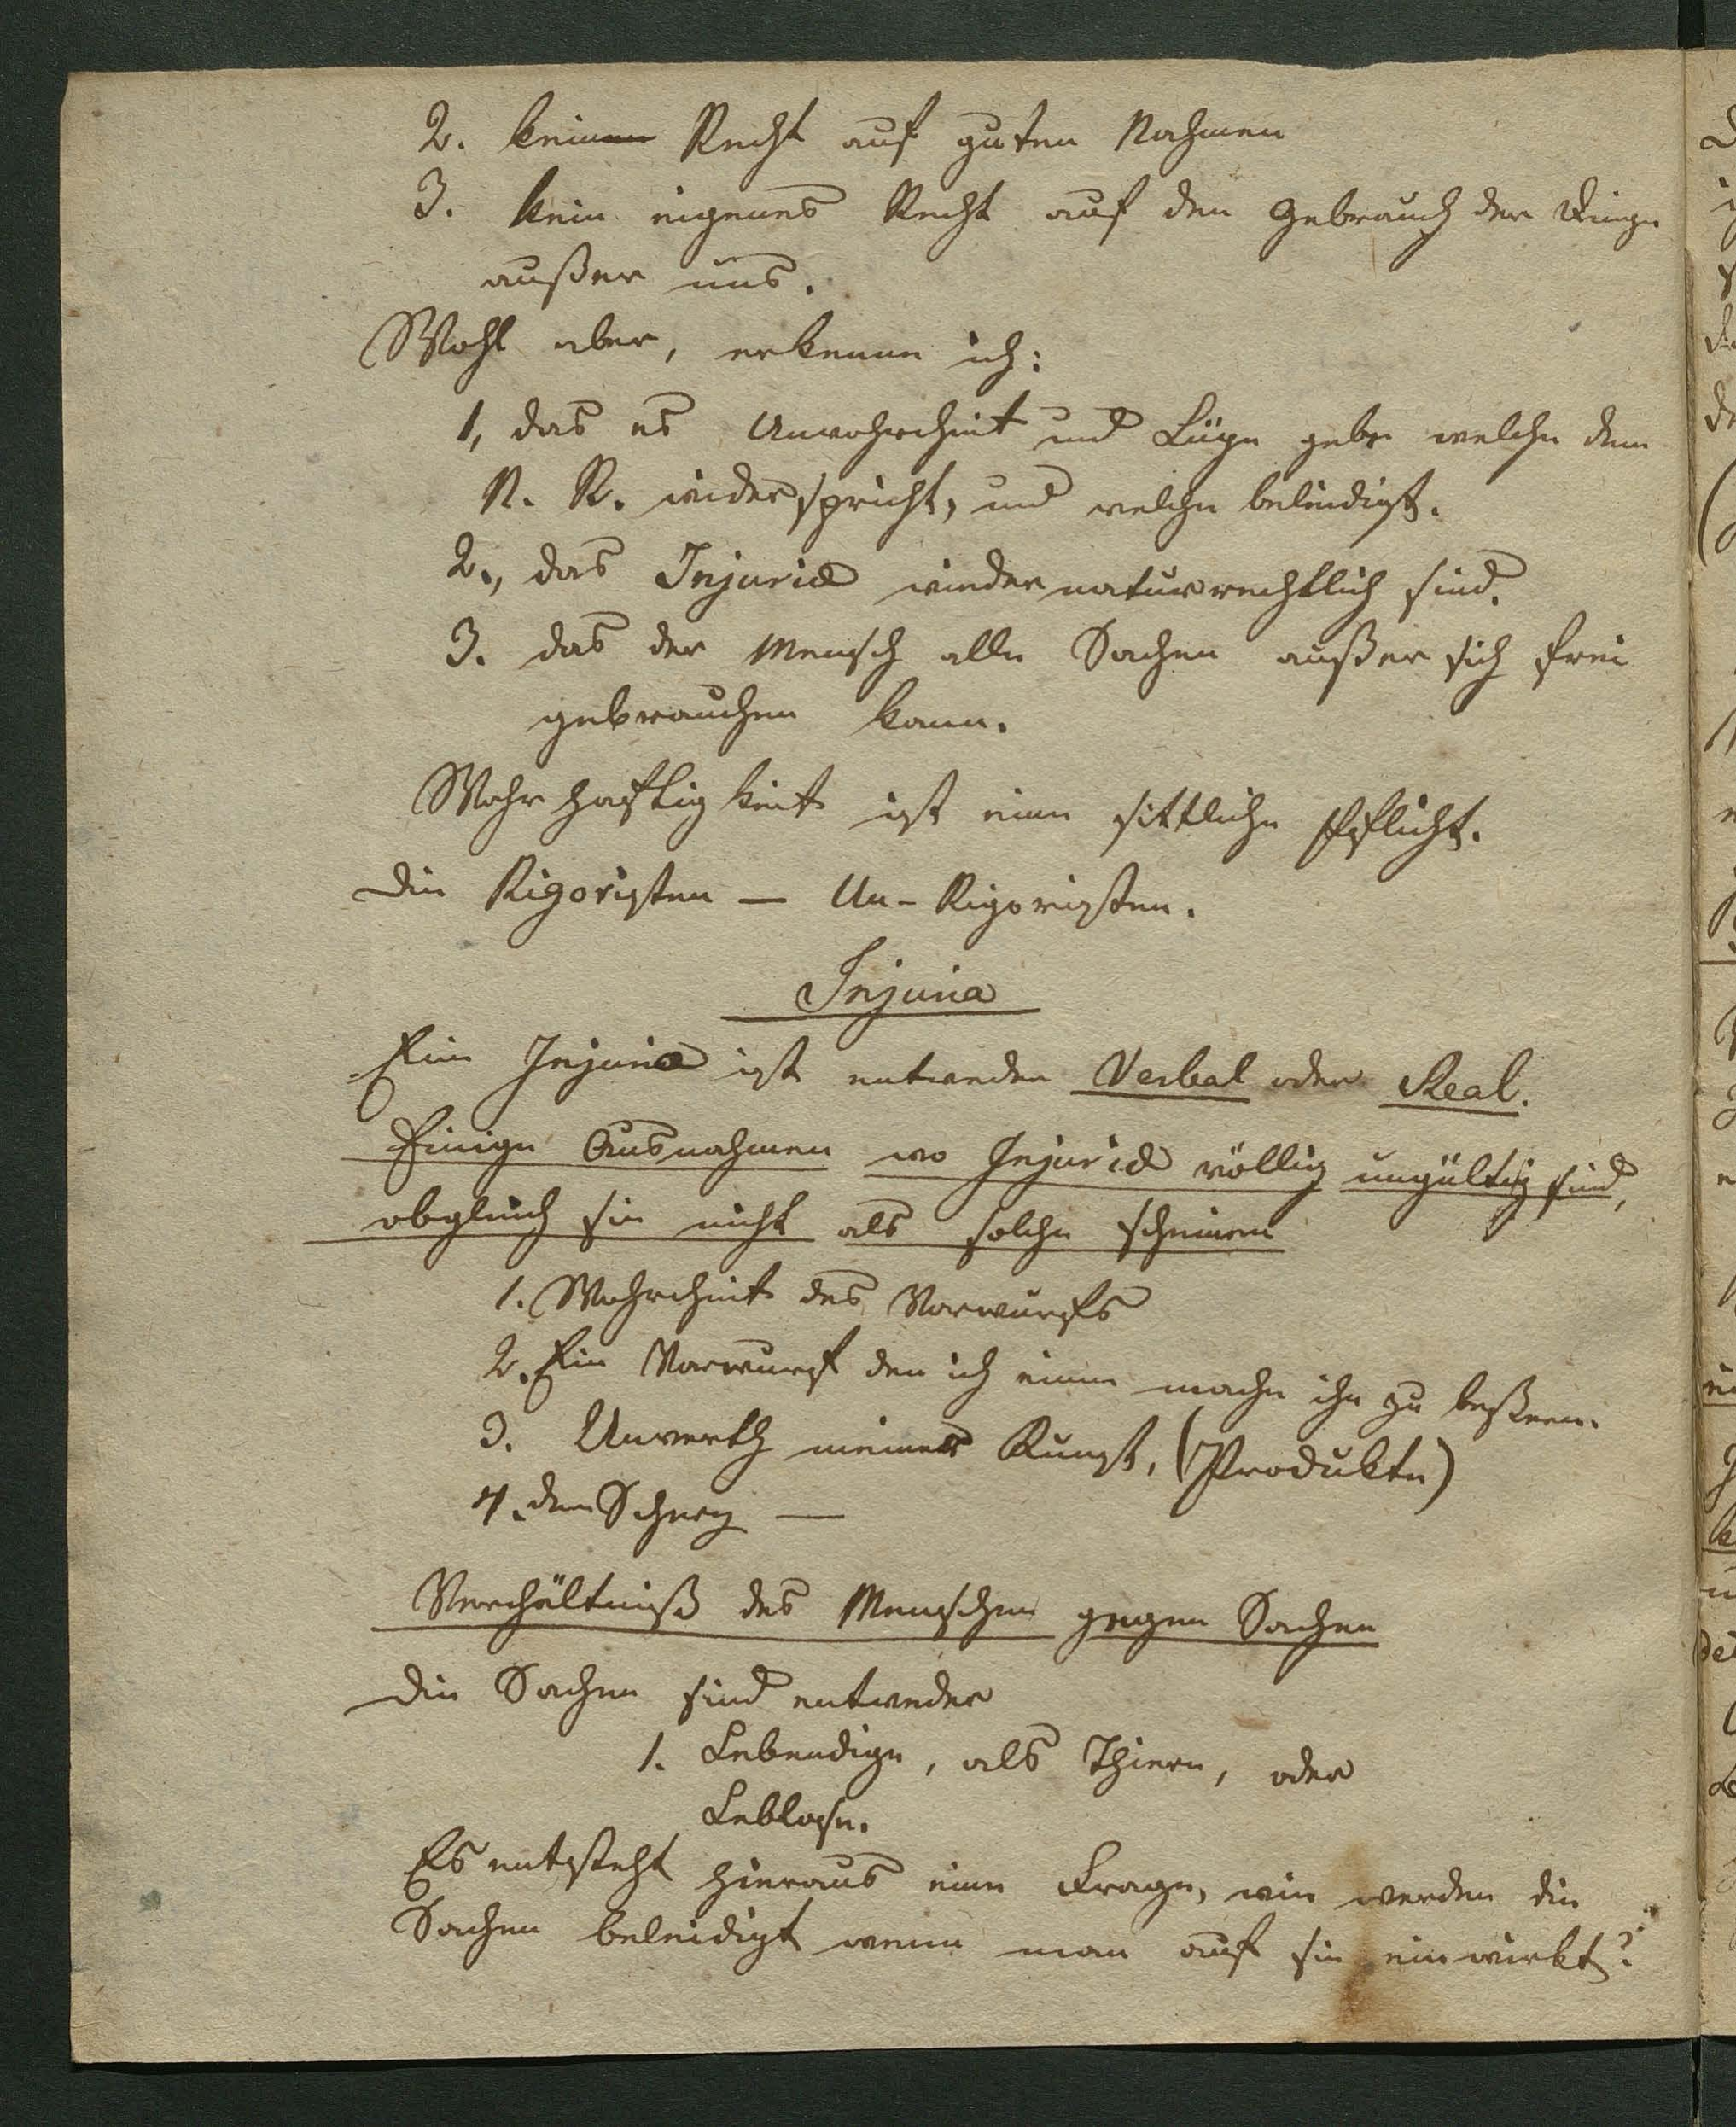 2. kein Recht auf guten Nahmen
3. kein eigenes Recht auf den Gebrauch der Dinge
außer uns.
Wohl aber, erkenne ich:
1, das es Unwahrheit und Lüge gebe welche dem
N. R. wiederspricht, und welche beleidigt.
2., das Injurie wiedernaturrechtlich sind.
3. das der Mensch alle Sachen außer sich frei
gebrauchen kann.
Wahrhaftigkeit ist eine sittliche Pflicht.
Die Rigoristen — Un-Rigoristen.
Injuria
Eine Injuria ist entweder Verbal oder Real.
Einige Ausnahmen wo Injurie völlig ungültig sind,
obgleich sie nicht als solche scheinen
1. Wahrheit des Vorwurfs
2. Ein Vorwurf den ich einem mache ihn zu beßern.
3. Unwerth meiner Kunst, (Produkte)
4. dem Scherz —
Verhältniß des Menschen gegen Sachen
Die Sachen sind entweder
1. Lebendige, als Thiere, oder
Leblose.
Es entsteht hieraus eine Frage, wie werden die
Sachen beleidigt wenn man auf sie einwirkt?